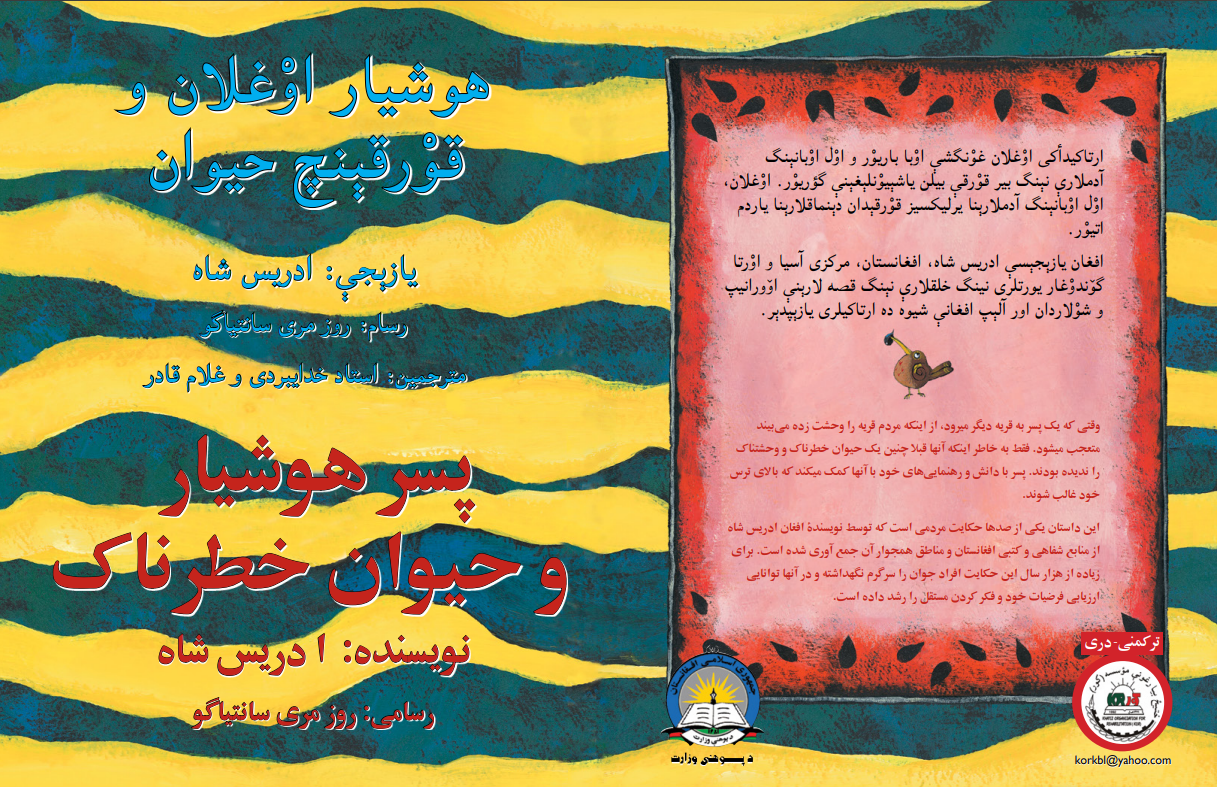 هوشیار اوْغلان و
قوْرقېنچ حیوان
یازېجې: ادریس شاه
رسام: روز مری سانتیاگو
مترجمین: استاد خدایبردی و غلام قادر
پسر هوشیار
و حیوان خطرناک
نویسنده: ا دریس شاه
رسامی: روز مری سانتیاگو
ارتاکیدأکی اوْغلان غوْنگشې اوْبا باریوْر و اوْل اوْبانېنگ
آدملارې نېنگ بیر قوْرقې بیلن یاشېیوْنلېغېنې گؤریوْر. اوْغلان،
اوْل اوْبانېنگ آدملارېنا یرلیکسیز قوْرقېدان دېنماقلارېنا یاردم
اتیوْر.
افغان یازېجېسې ادریس شاه، افغانستان، مرکزی آسیا و اوْرتا
گوْندوْغار یورتلری نینگ خلقلارې نېنگ قصه لارېنې اوْورانیپ
و شوْلاردان اور آلېپ افغانې شیوه ده ارتاکیلری یازېپدېر.
وقتی که یک پسر به قریه دیگر میرود، از اینکه مردم قریه را وحشت زده می‌بیند
متعجب میشود. فقط به خاطر اینکه آنها قبلا چنین یک حیوان خطرناک و وحشتناک
را ندیده بودند. پسر با دانش و رهنمایی‌های خود با آنها کمک میکند که بالای ترس
خود غالب شوند.
این داستان یکی از صدها حکایت مردمی است که توسط نویسندۀ افغان ادریس شاه
از منابع شفاهی و کتبی افغانستان و مناطق همجوار آن جمع آوری شده است. برای
زیاده از هزار سال این حکایت افراد جوان را سرگرم نگهداشته و در آنها توانایی
ارزیابی فرضیات خود و فکر کردن مستقل را رشد داده است.
جمهوری اسلامی افغانستان
د پوهنې وزارت
د پـــوهنې وزارت
ترکمنی-دری
KHATIZ ORGANIZATION FOR
REHABILITATION (KOR)
korkbl@yahoo.com